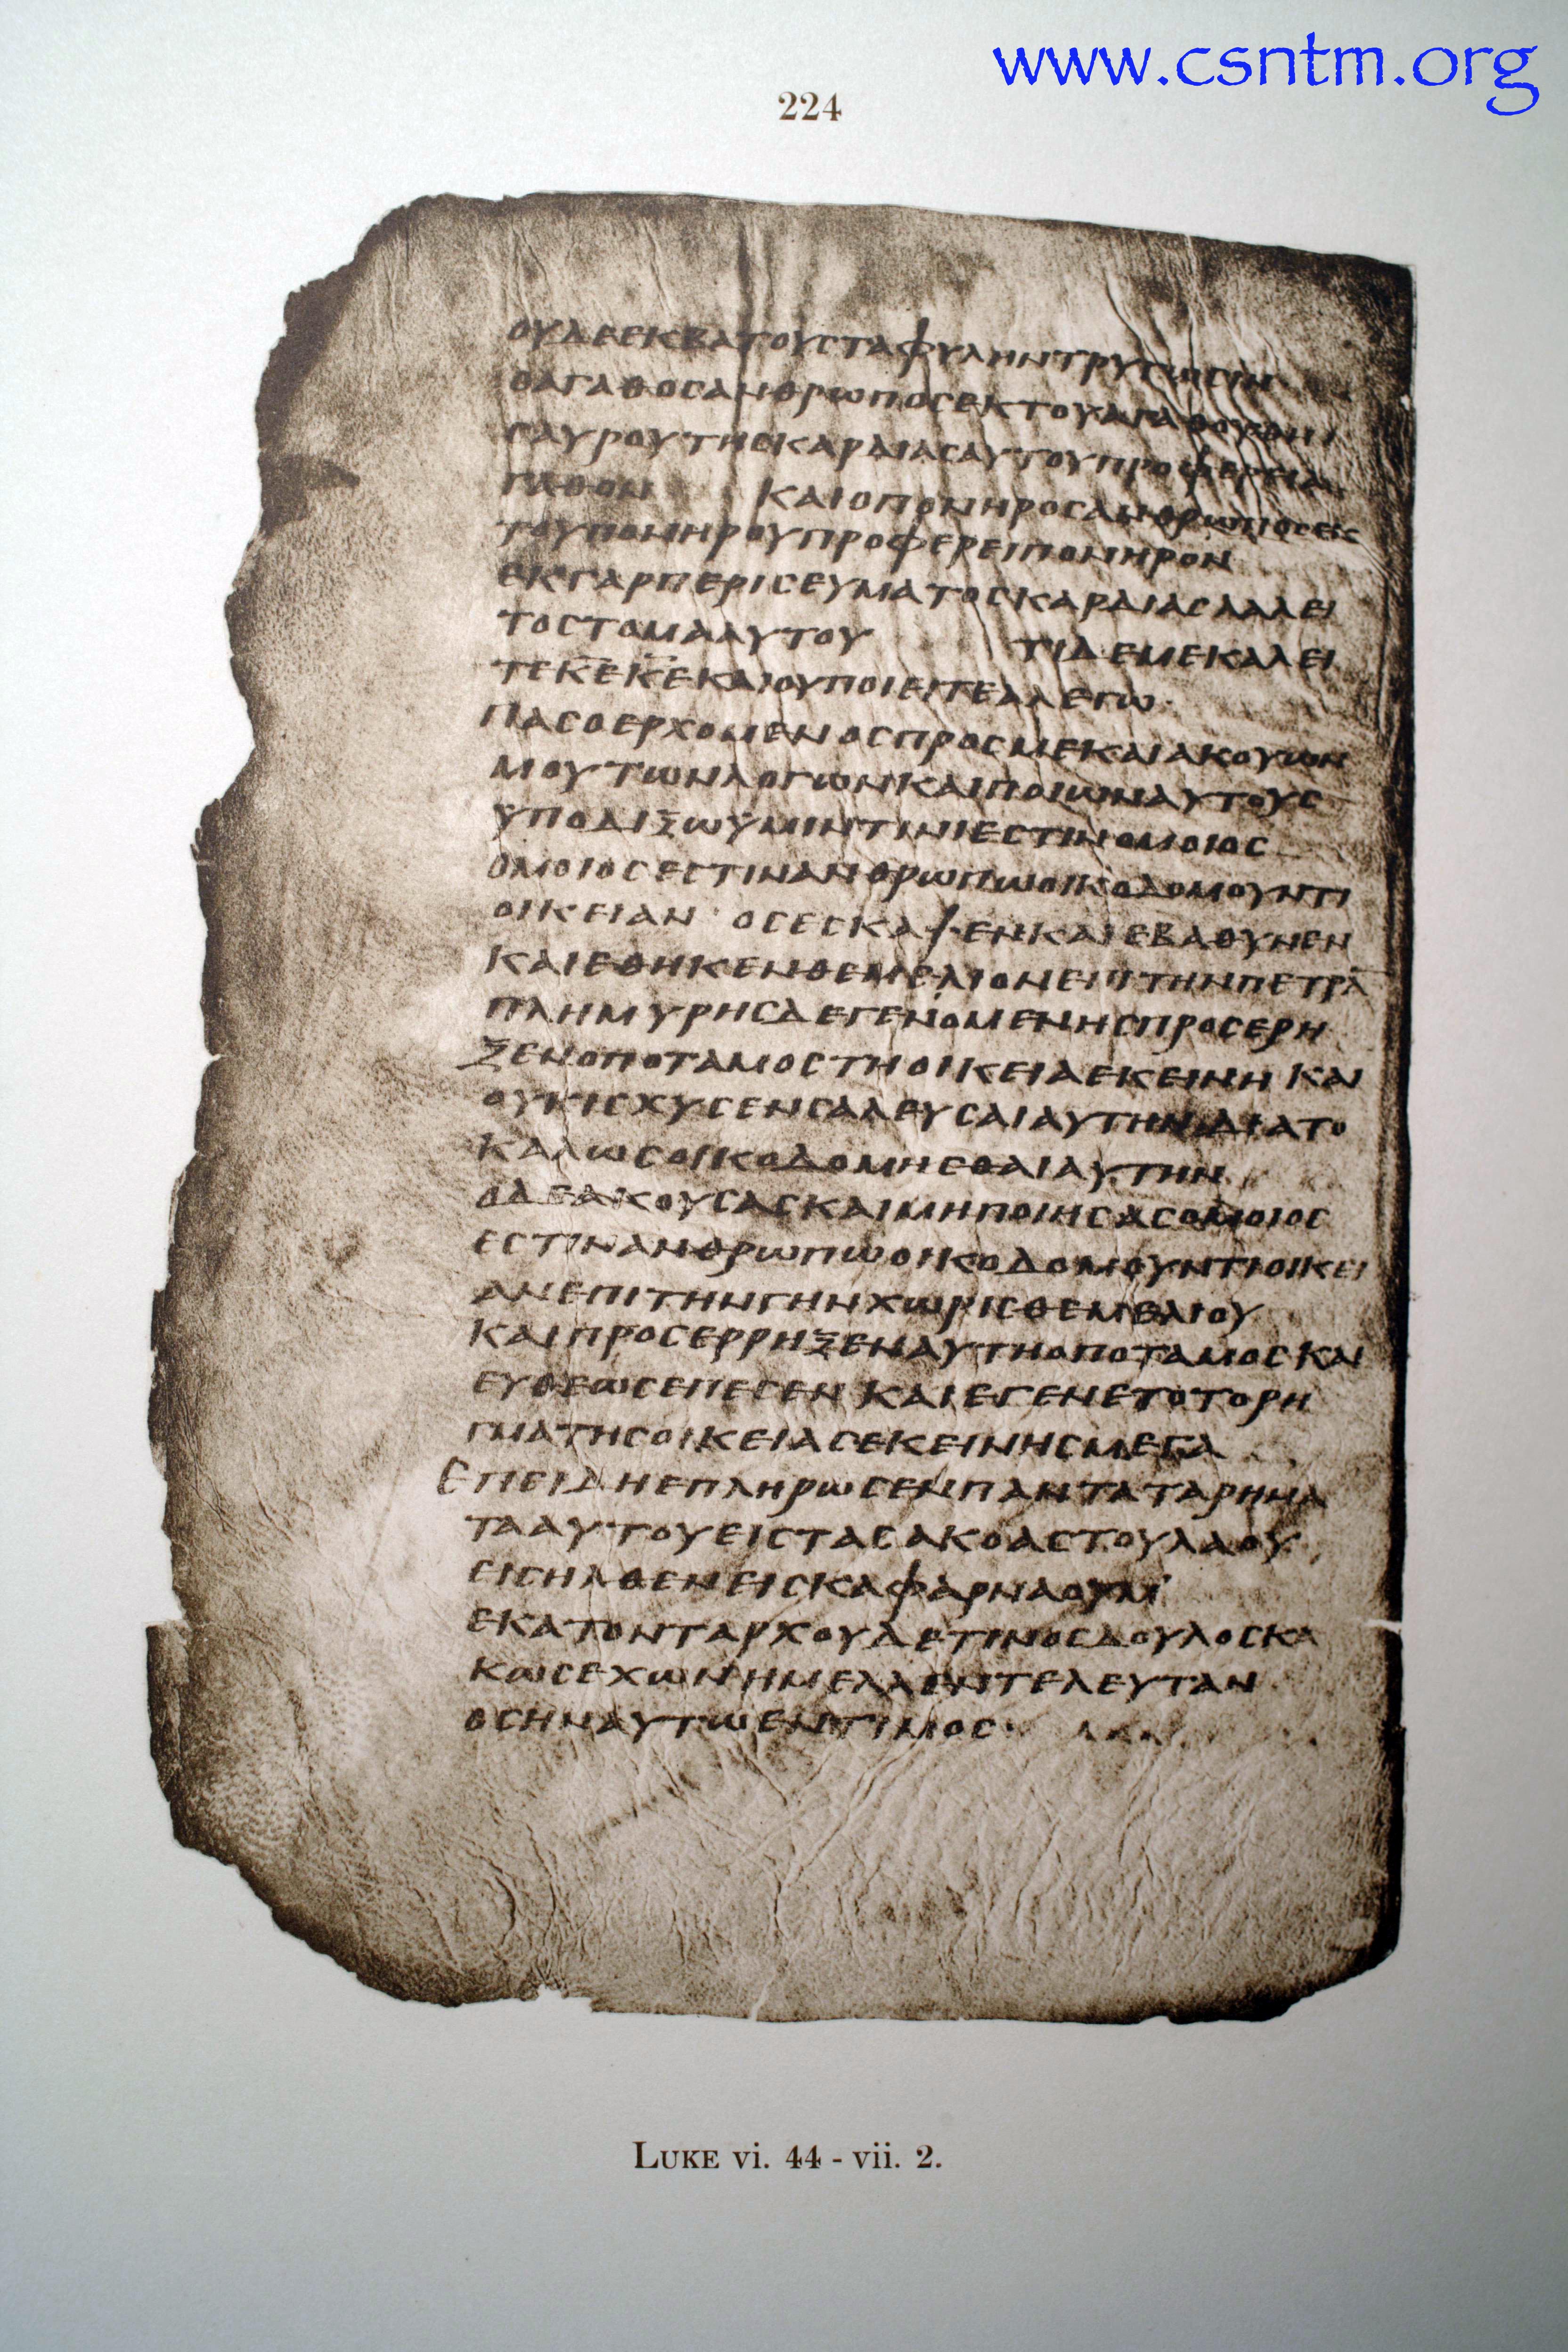 www.csntm.org
224
ΟΥΔΕΕΚΒΑΤΟΥΣΤΑΦΥΛΗΝΤΡΥΓΩΣΙΝ
ΟΑΓΑΘΟΣΑΝΘΡΩΠΟΣΕΚΤΟΥΑΓΑΘΟΥΘΗ
ΣΑΥΡΟΥΤΗΣΚΑΡΔΙΑΣΑΥΤΟΥΠΡΟΦΕΡΕΙΑ
ΓΑΘΟΝ ΚΑΙΟΠΟΝΗΡΟΣΑΝΘΡΩΠΟΣΕΚ
ΤΟΥΠΟΝΗΡΟΥΠΡΟΦΕΡΕΙΠΟΝΗΡΟΝ
ΕΚΓΑΡΠΕΡΙΣΕΥΜΑΤΟΣΚΑΡΔΙΑΣΛΑΛΕΙ
ΤΟΣΤΟΜΑΑΥΤΟΥ ΤΙΔΕΜΕΚΑΛΕΙ
ΤΕΚ̅Ε̅Κ̅Ε̅ΚΑΙΟΥΠΟΙΕΙΤΕΑΛΕΓΩ
ΠΑΣΟΕΡΧΟΜΕΝΟΣΠΡΟΣΜΕΚΑΙΑΚΟΥΩΝ
ΜΟΥΤΩΝΛΟΓΩΝΚΑΙΠΟΙΩΝΑΥΤΟΥΣ
ΥΠΟΔΙΞΩΫΜΙΝΤΙΝΙΕΣΤΙΝΟΜΟΙΟΣ
ΟΜΟΙΟΣΕΣΤΙΝΑΝΘΡΩΠΩΟΙΚΟΔΟΜΟΥΝΤΙ
ΟΙΚΕΙΑΝ · ΟΣΕΣΚΑΨΕΝΚΑΙΕΒΑΘΥΝΕΝ
ΚΑΙΕΘΗΚΕΝΘΕΜΕΛΙΟΝΕΠΙΤΗΝΠΕΤΡΑ̅
ΠΛΗΜΥΡΗΣΔΕΓΕΝΟΜΕΝΗΣΠΡΟΣΕΡΗ
ΞΕΝΟΠΟΤΑΜΟΣΤΗΟΙΚΕΙΑΕΚΕΙΝΗ ΚΑΙ
ΟΥΚΙΣΧΥΣΕΝΣΑΛΕΥΣΑΙΑΥΤΗΝΔΙΑΤΟ
ΚΑΛΩΣΟΙΚΟΔΟΜΗΣΘΑΙΑΥΤΗΝ
ΟΔΕΑΚΟΥΣΑΣΚΑΙΜΗΠΟΙΗΣΑΣΟΜΟΙΟΣ
ΕΣΤΙΝΑΝΘΡΩΠΩΟΙΚΟΔΟΜΟΥΝΤΙΟΙΚΕΙ
ΑΝΕΠΙΤΗΝΓΗΝΧΩΡΙΣΘΕΜΕΛΙΟΥ
ΚΑΙΠΡΟΣΕΡΡΗΞΕΝΑΥΤΗΟΠΟΤΑΜΟΣΚΑΙ
ΕΥΘΕΩΣΕΠΕΣΕΝ ΚΑΙΕΓΕΝΕΤΟΤΟΡΗ
ΓΜΑΤΗΣΟΙΚΕΙΑΣΕΚΕΙΝΗΣΜΕΓΑ
ΕΠΕΙΔΗΕΠΛΗΡΩΣΕΝΠΑΝΤΑΤΑΡΗΜΑ
ΤΑΑΥΤΟΥΕΙΣΤΑΣΑΚΟΑΣΤΟΥΛΑΟΥ
ΕΙΣΗΛΘΕΝΕΙΣΚΑΦΑΡΝΑΟΥΜ
ΕΚΑΤΟΝΤΑΡΧΟΥΔΕΤΙΝΟΣΔΟΥΛΟΣΚΑ
ΚΩΣΕΧΩΝΗΜΕΛΛΕΝΤΕΛΕΥΤΑΝ
ΟΣΗΝΑΥΤΩΕΝΤΙΜΟΣ·
LUKE vi. 44 - vii. 2.